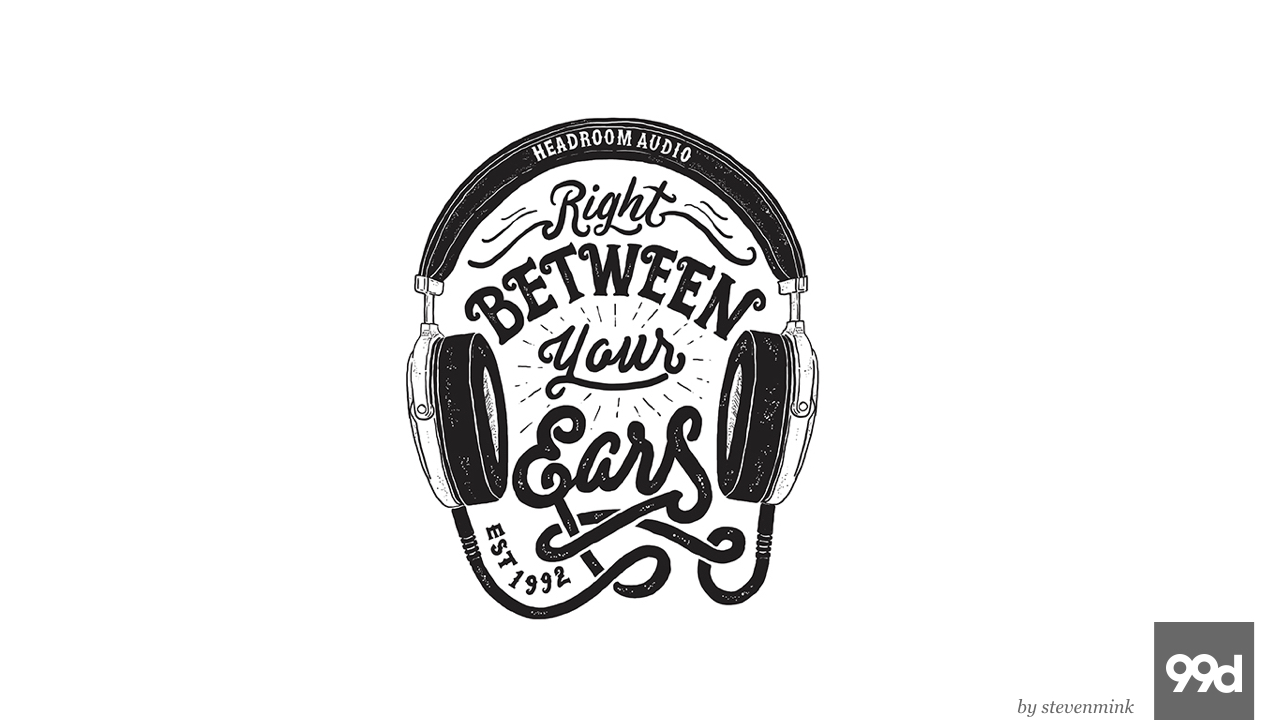 HEADROOM AUDIO
Right
BETWEEN
Your
Ears
EST 1992
by stevenmink
99d